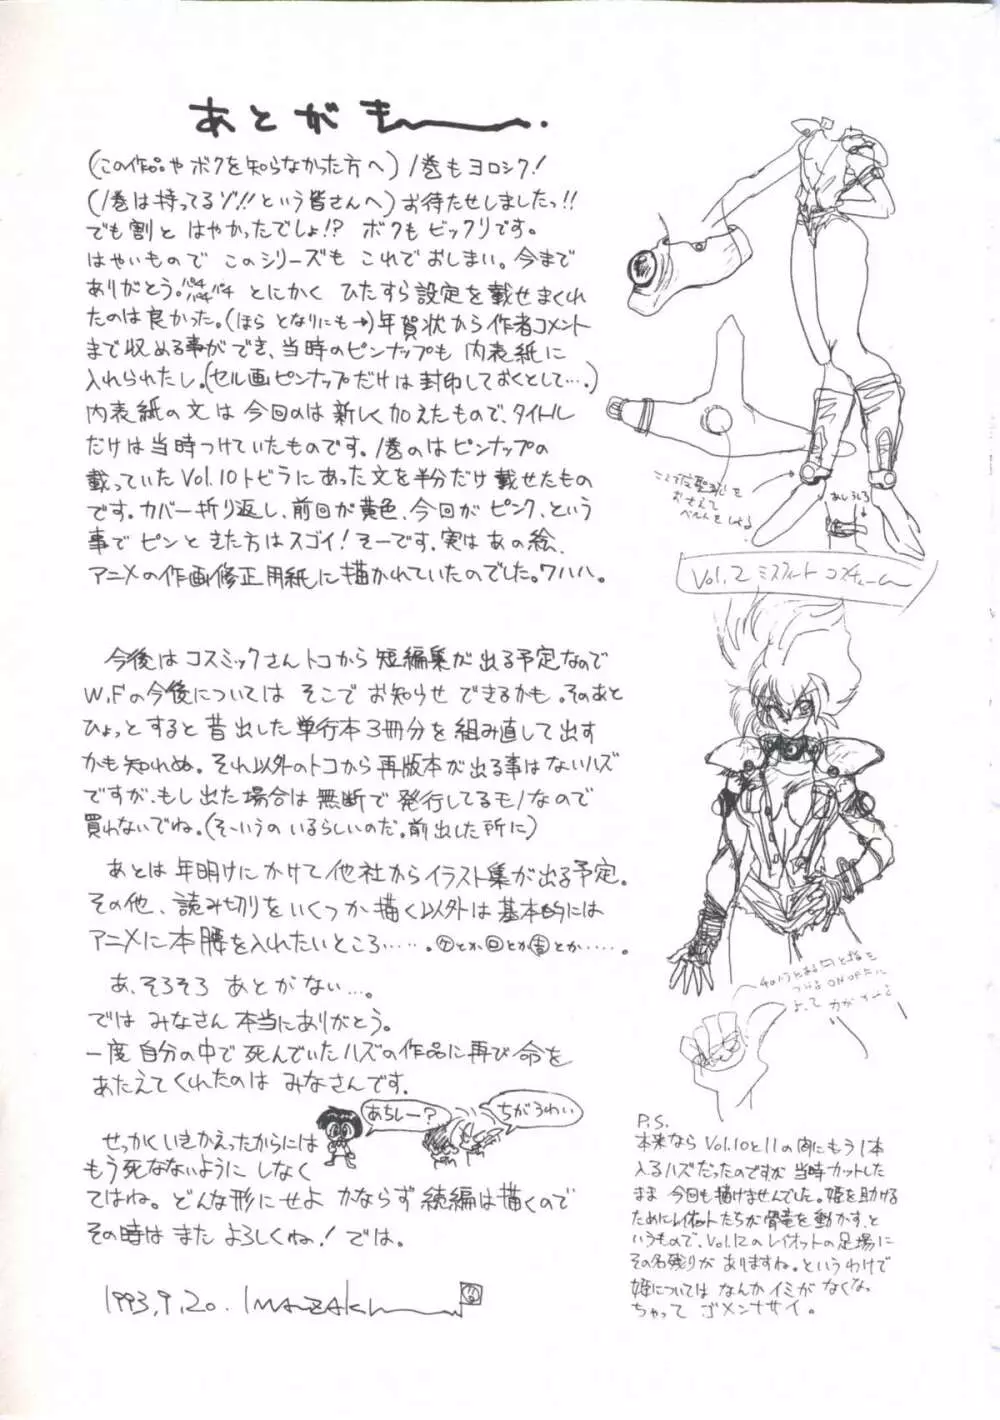 あとがきー.
(この作品や ボクを知らなかった方へ) 1巻もヨロシク!
(1巻は持ってるゾ!!という皆さんへ) お待たせしましたっ!!
でも割と はやかったでしょ!? ボクもビックリです。
はやいもので このシリーズも これでおしまい。今まで
ありがとう。パチパチパチ とにかく ひたすら設定を載せまくれ
たのは良かった。(ほら となりにも→)年賀状から作者コメント
まで収める事ができ、当時のピンナップも 内表紙に
入れられたし。(セル画ピンナップだけは封印しておくとして….)
内表紙の文は今回のは新しく加えたもので、タイトル
だけは当時つけていたものです。1巻のはピンナップの
載っていた Vol.10トビラにあった文を半分だけ載せたもの
です。カバー折り返し、前回が黄色、今回がピンク、という
事でピンときた方はスゴイ!そーです、実はあの絵、
アニメの作画修正用紙に描かれていたのでした。ワハハ。
今後はコスミックさんトコから短編集が出る予定なので
W.Fの今後については そこで お知らせ できるかも。そのあと
ひょっとすると昔出した単行本3冊分を組み直して出す
かも知れぬ。それ以外のトコから再版本が出る事はないハズ
ですが、もし出た場合は無断で発行してるモノなので
買わないでね。(そーいうの いるらしいのだ。前出した所に)
あとは年明けにかけて他社からイラスト集が出る予定。
その他、読み切りをいくつか描く以外は基本的には
アニメに本腰を入れたいところ……。
あ、そろそろ あとがない…。
では みなさん本当にありがとう。
一度自分の中で死んでいたハズの作品に再び命を
あたえてくれたのは みなさんです.
あちしー?
ちがうわい
せっかくいきかえったからには
もう死なないように しなく
てはね。どんな形にせよ かならず続編は描くので
その時は また よろしくね! では。
1993.9.20. IMAZAKI
おさえて
Vol.2 ミスフィート コスチューム
P.S.
本来なら Vol.10と11の間にもう1本
入るハズだったのですが 当時カットした
まま 今回も描けませんでした。姫を助ける
ためにレイオットたちが骨竜を動かす、と
いうもので、Vol.12のレイオットの足場に
その名残りが ありますね。というわけで
姫については なんかイミがなくなっ
ちゃって ゴメンナサイ。